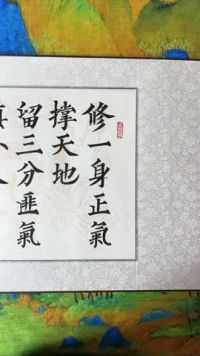 修一身正氣
撐天地
留三分匪氣